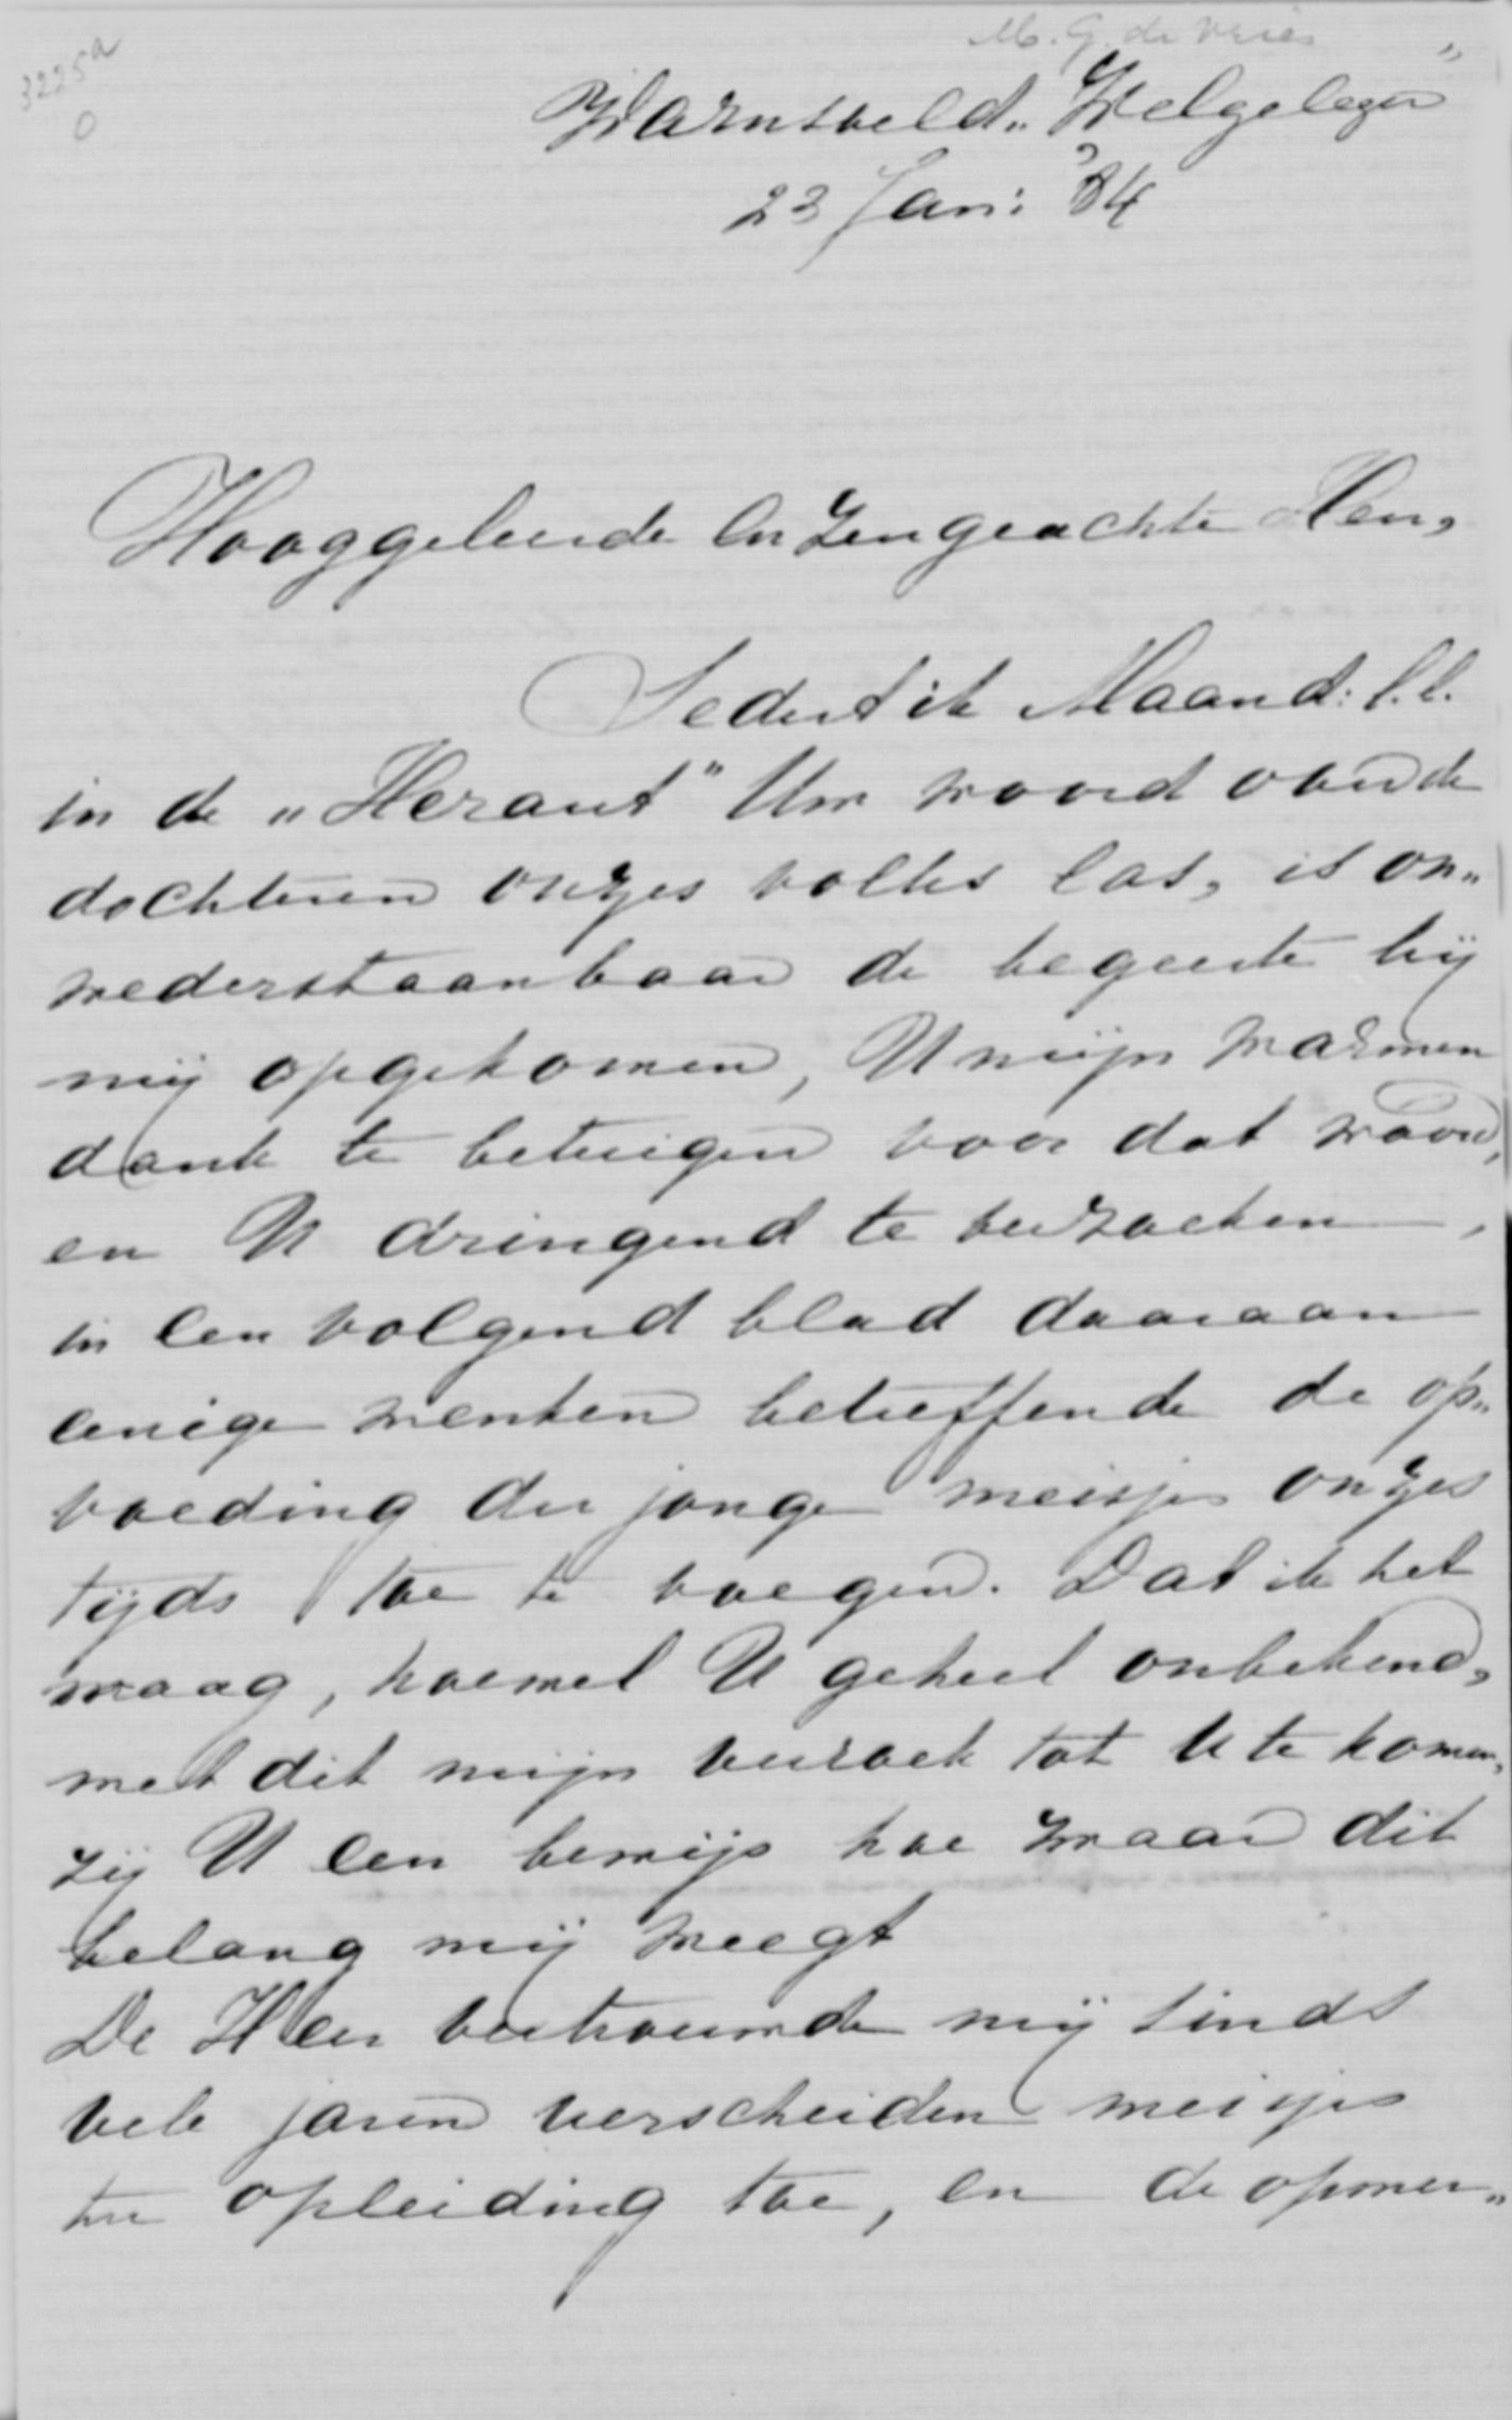 M. G. de Vries
3225a
0
Warnsveld „Welgelegen”
23 Jan: 84
Hooggeleerde en Zeergeachte Heer,
Sedert ik Maand: l.l.
in de „Heraut” Uw woord over de
dochteren onzes volks las, is on„
wederstaanbaar de begeerte bij
mij opgekomen, U mijn warmen
dank te betuigen voor dat woord,
en U dringend te verzoeken,
in een volgend blad daaraan
eenige wenken betreffende de op„
voeding der jonge meisjes onzes
tijds toe te voegen. Dat ik het
waag, hoewel U geheel onbekend,
met dit mijn verzoek tot U te komen,
zij U een bewijs hoe zwaar dit
belang mij weegt
De Heer vertrouwde mij sinds
vele jaren verscheiden meisjes
ter opleiding toe, en de opmer„